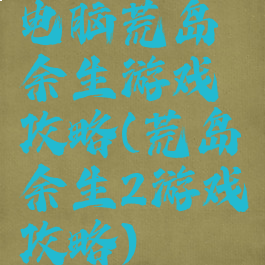 电脑荒岛
余生游戏
攻略(荒岛
余生2游戏
攻略)